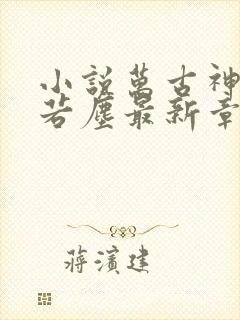 小說萬古神
若塵最新章
蔣濱建